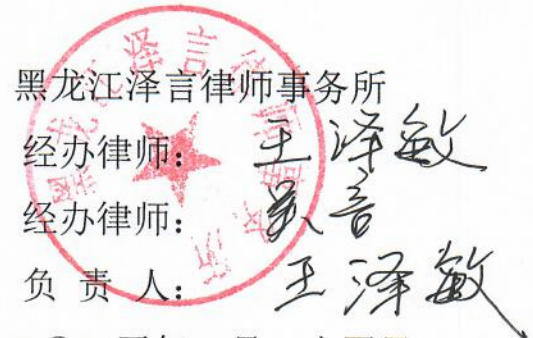 黑龙江泽言律师事务所
经办律师: 王泽敏
经办律师: 吴音
负 责 人: 王泽敏